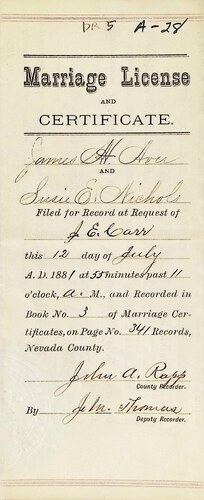 DR 5 A-28
Marriage License
AND
CERTIFICATE.
James H.
AND
Susie E. Nichols
Filed for Record at Request of
J E Carr
this 12 day of July
A. D. 1881 at 55 minutes past 11
o'clock, a. M., and Recorded in
Book No. 3 of Marriage Cer-
tificates, on Page No. 341 Records,
Nevada County.
John A. Rapp
County Recorder.
By Jno. Thomas
Deputy Recorder.